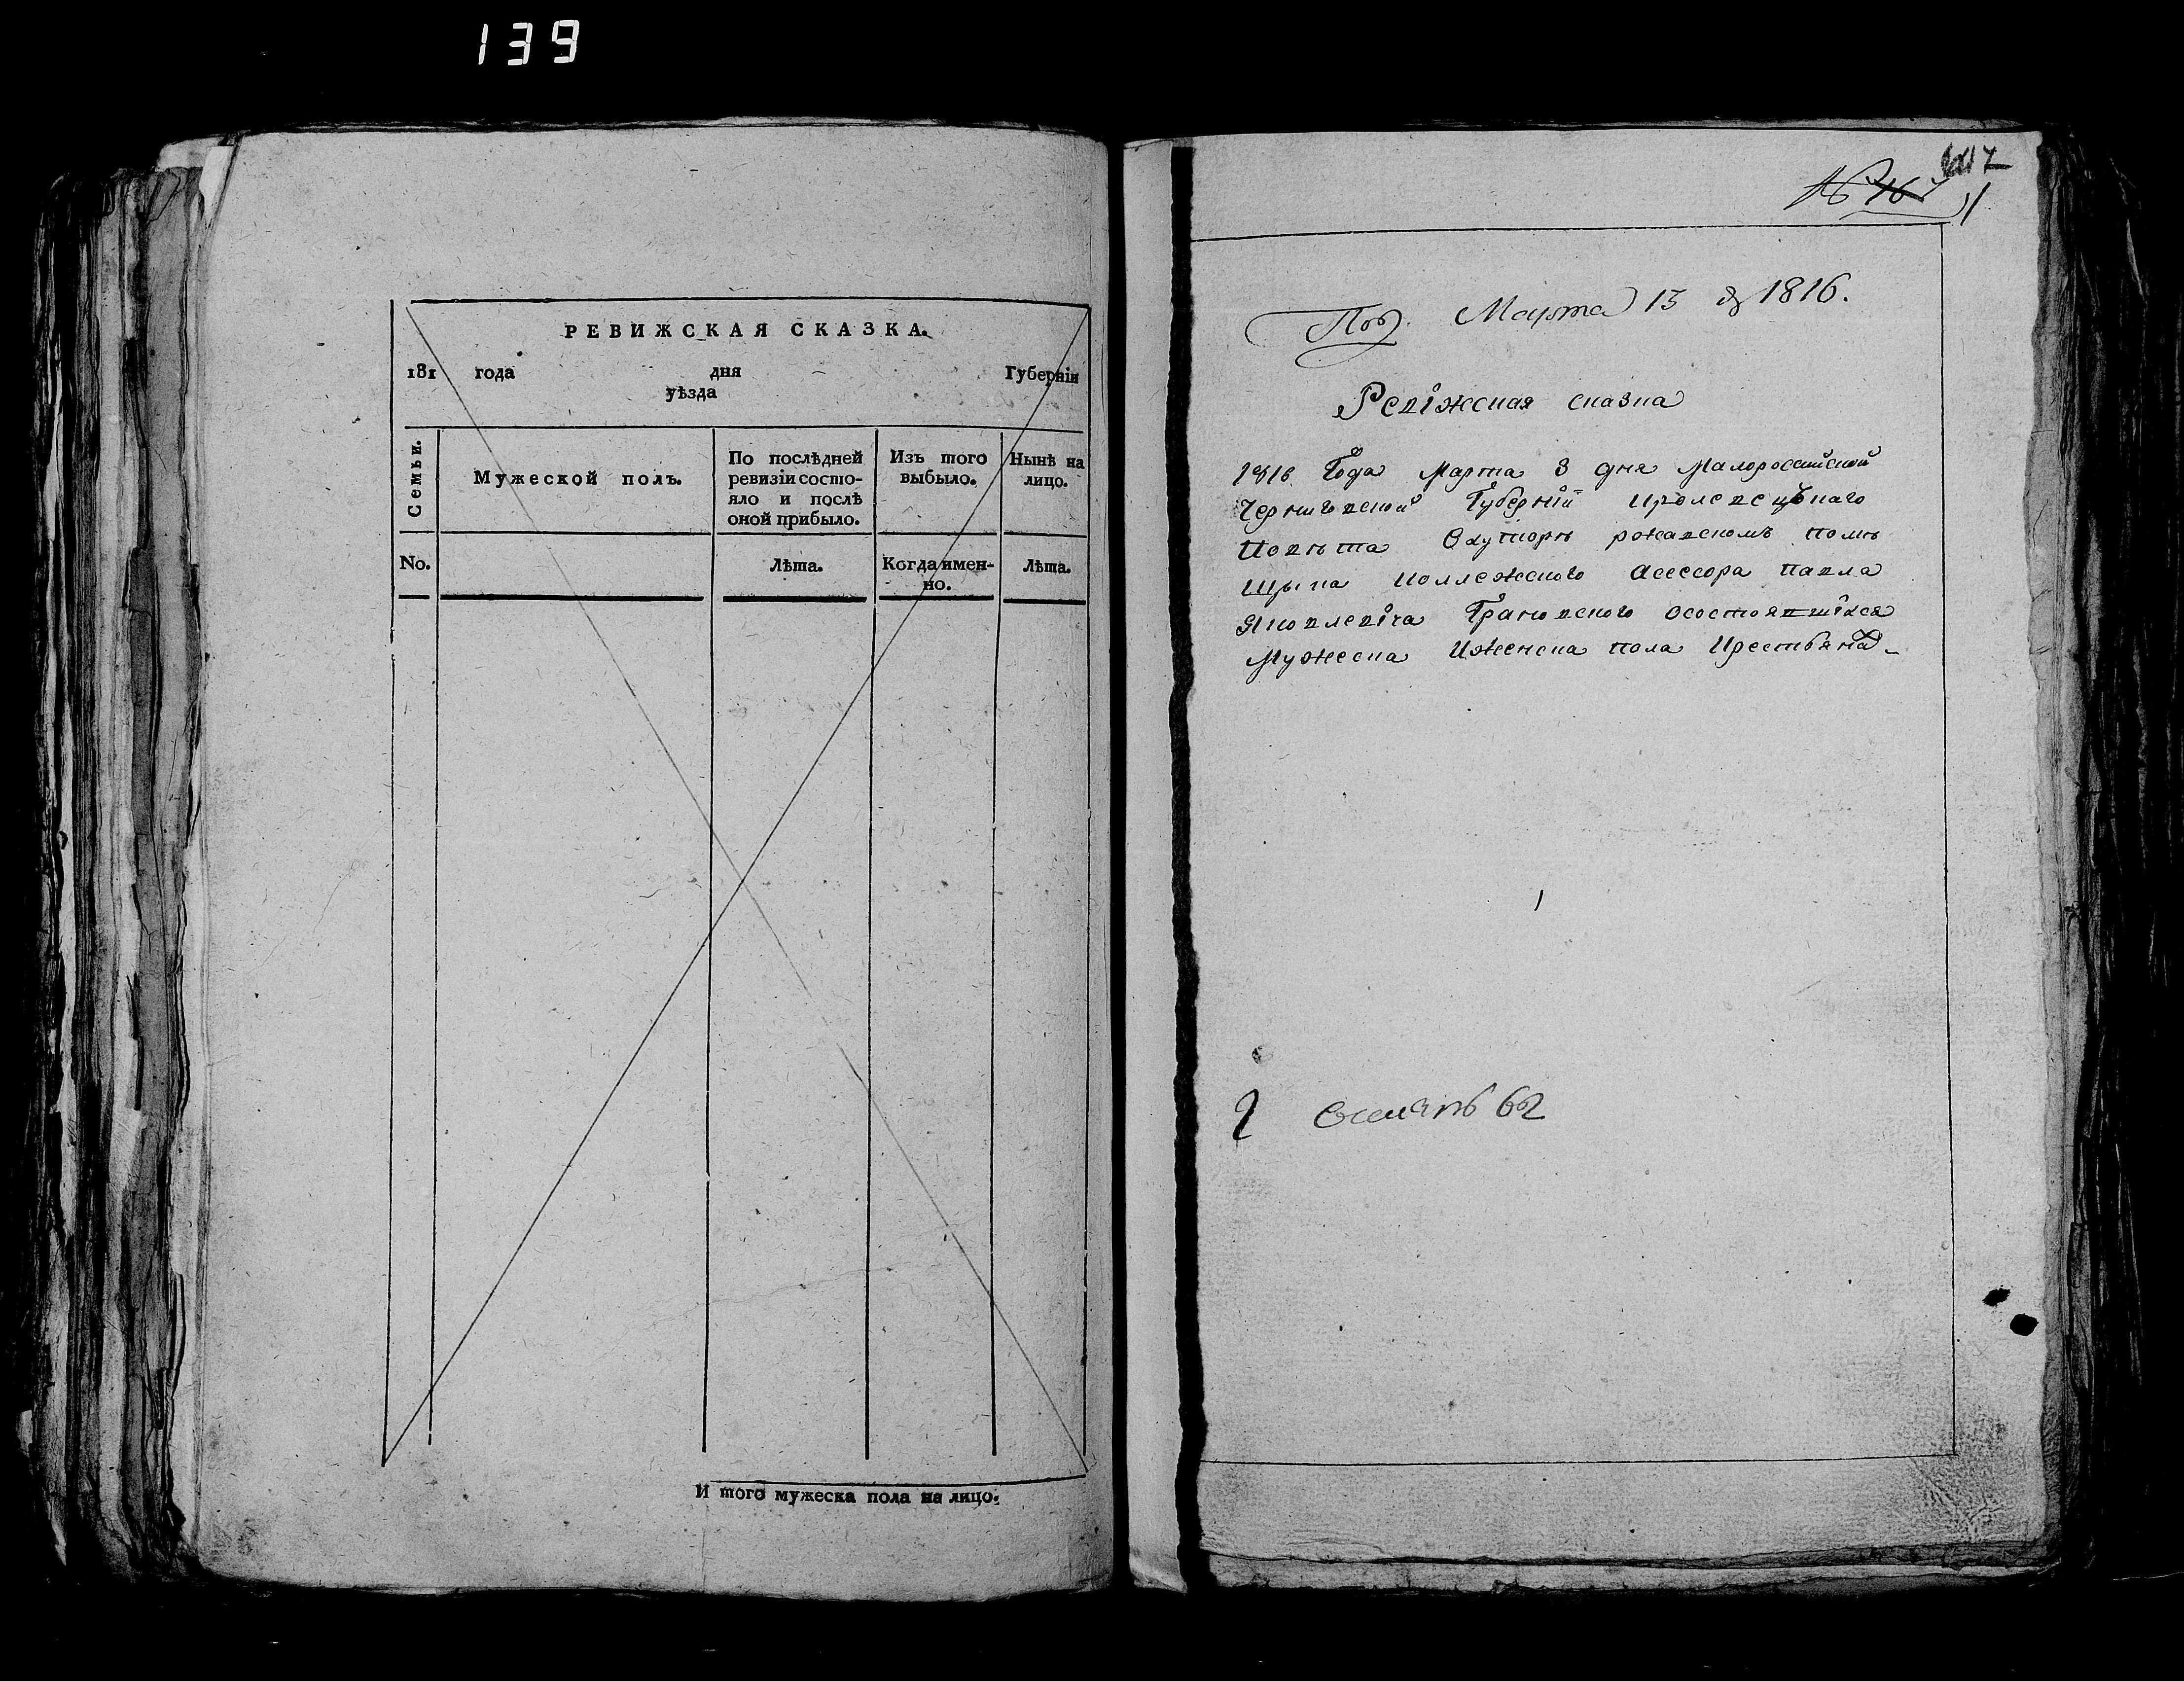 139
РЕВИЖСКАЯ СКАЗКА.
181 года дня Губерніи
уѣзда
Семьи.
Мужеской полъ.
По послѣдней
ревизіи состо-
яло и послѣ
оной прибыло.
Изъ того
выбыло.
Нынѣ на
лицо.
No.
Лѣта.
Когда имен-
но.
Лѣта.
И того мужеска пола на лицо.
№
Марта 13 1816.
Ревіжская сказка
1816 Года Марта 3 дня Малороссийской
Черниговской Губерніи Кролевецкаго
Повѣта Вхуторѣ рожавскомъ помѣ
щика Коллежского Асессора павла
Яковлевіча Грановского осостоявшіхся
Мужеска Иженска пола Крестьянах